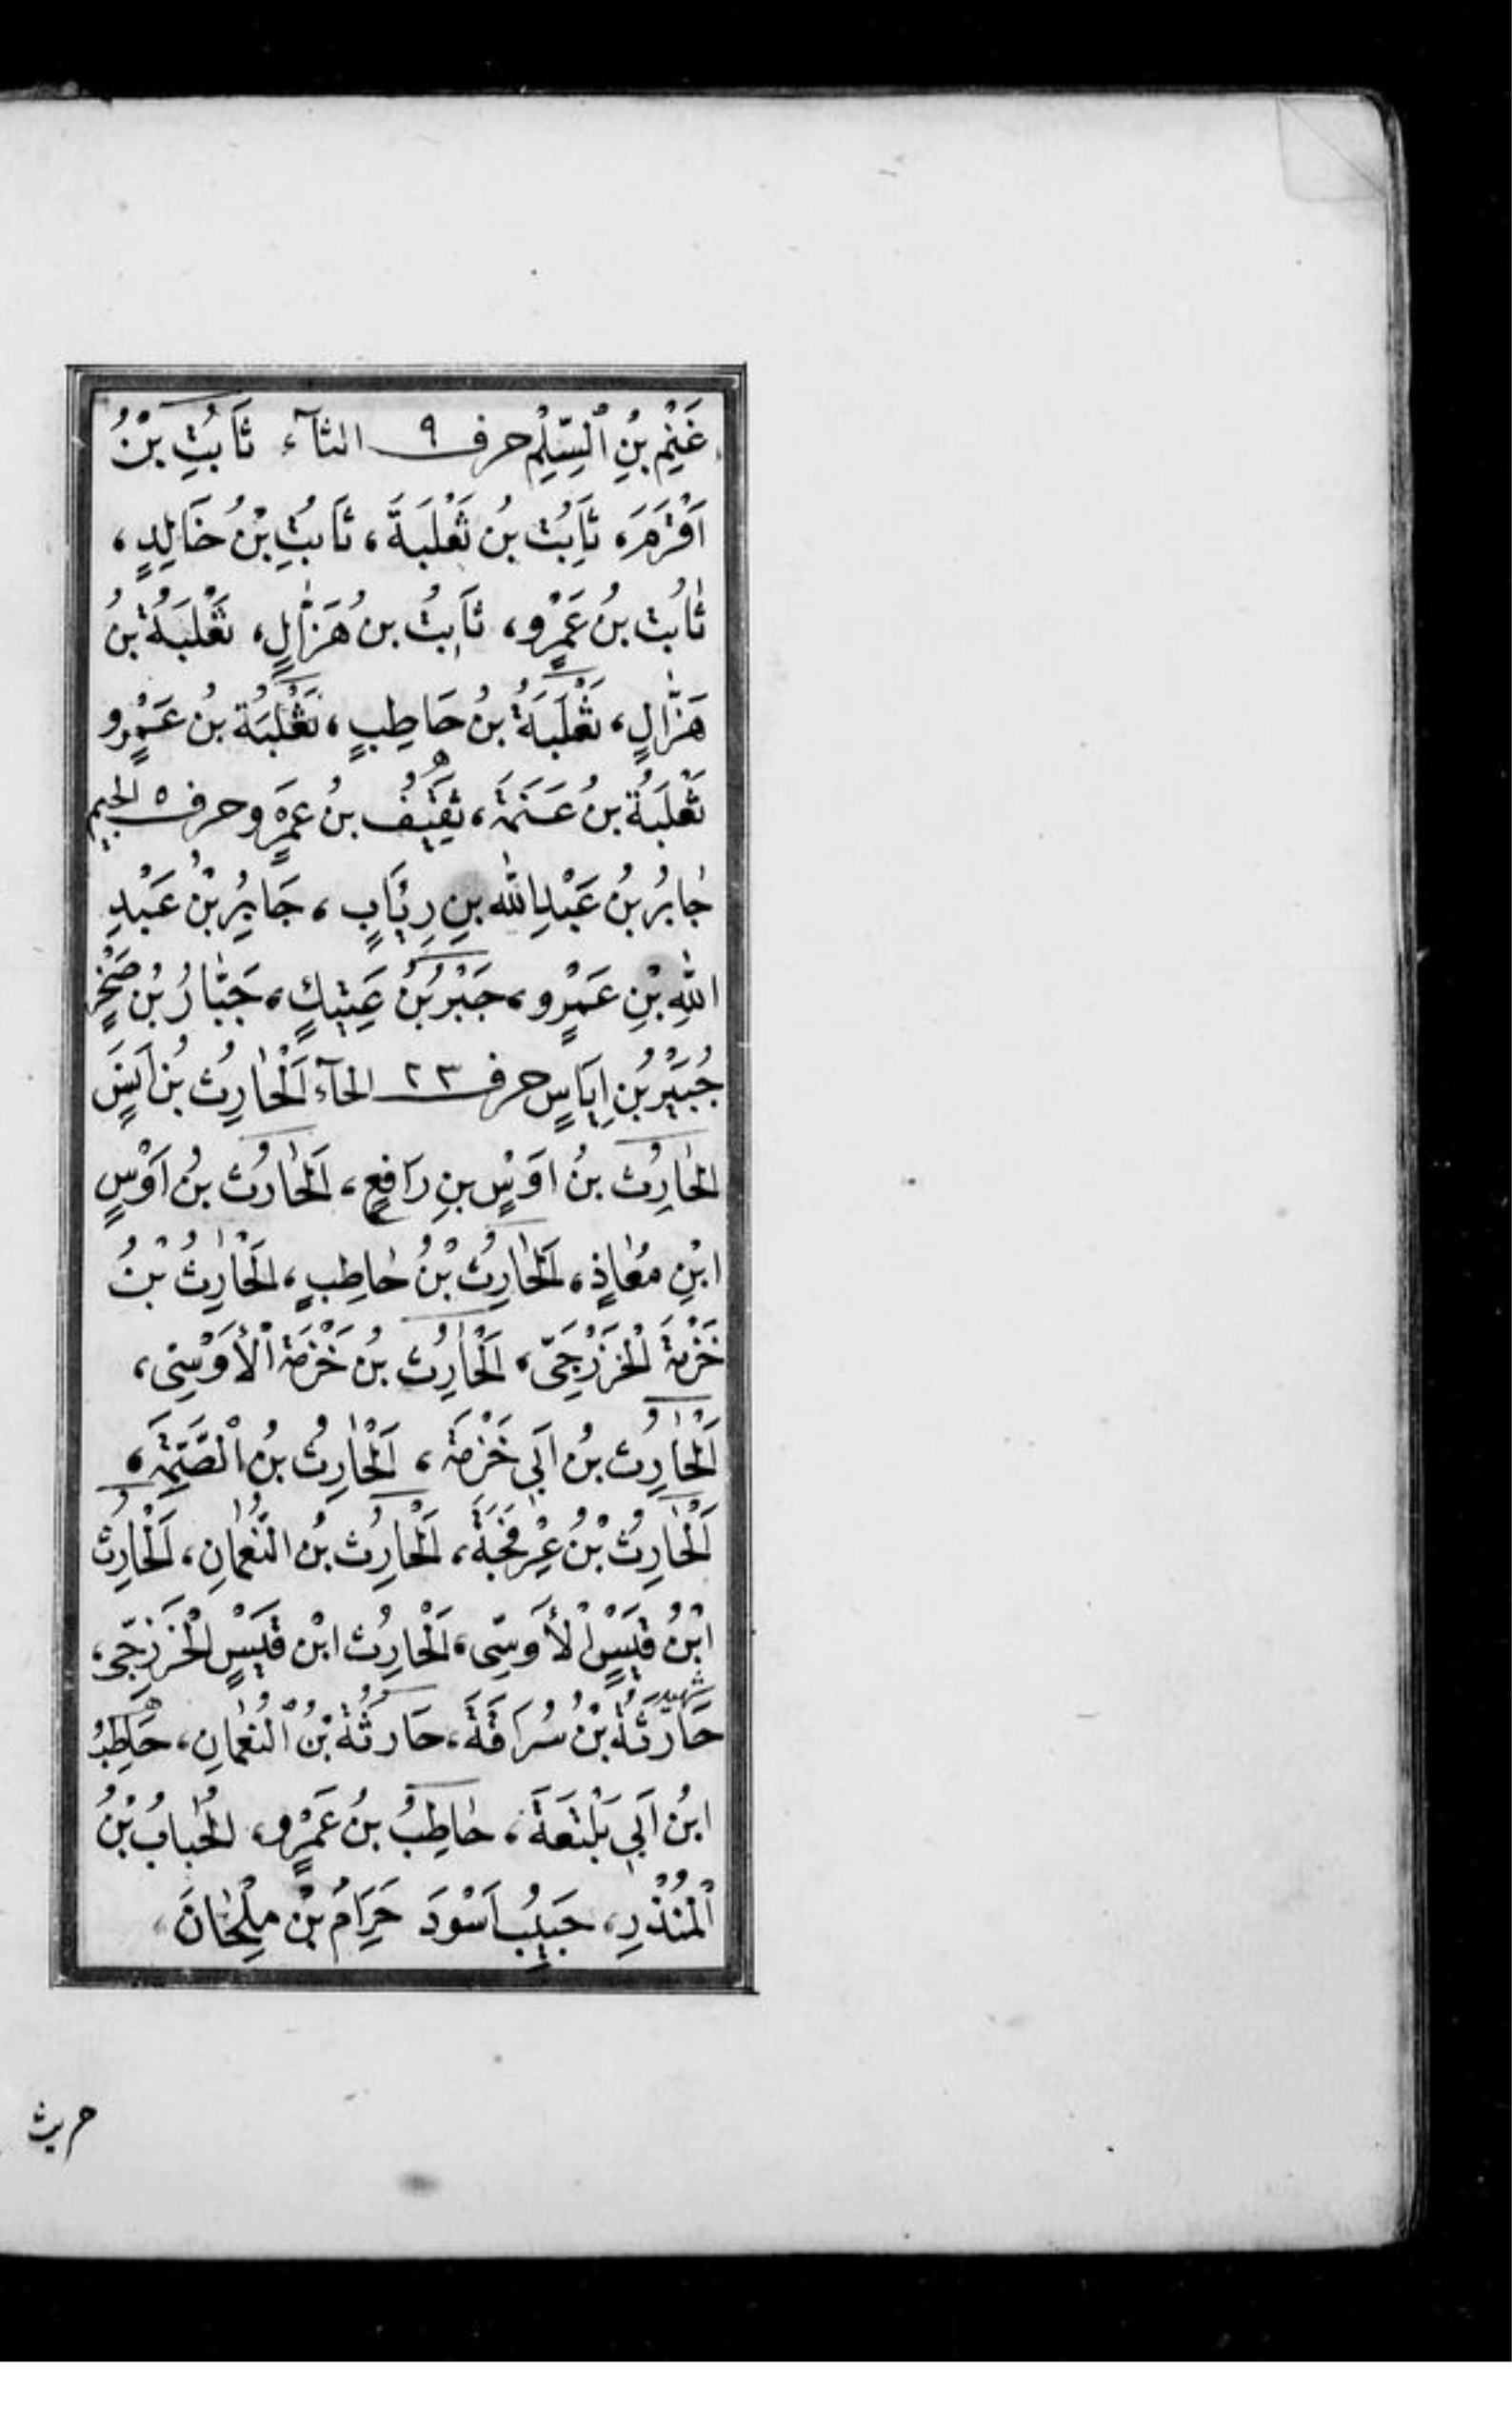 غَنْمِ بْنِ ٱلسِّلْمِ حرف ٩ الثآء ثَابِتُ بْنُ
اَقْرَمَ، ثَابِتُ بْنُ ثَعْلَبَةَ، ثَابِتُ بْنُ خَالِدٍ،
ثَابِتُ بنُ عَمْرٍو، ثَابِتُ بنُ هَزَّالٍ، ثَعْلَبَةُ بنُ
هَزَّالٍ، ثَعْلَبَةُ بنُ حَاطِبٍ، ثَعْلَبَةُ بنُ عَمْرٍو
ثَعْلَبَةُ بنُ عَنَمَةَ، ثَقِيفُ بنُ عَمْرٍو حرف ٥ الجيم
جَابِرُ بْنُ عَبْدِ اللّٰه بنِ رِيَابٍ، جَابِرُ بْنُ عَبْدِ
اللّٰهِ بْنِ عَمْرٍو، جَبْرُ بْنُ عَتِيكٍ، جَبَّارُ بْنُ صَخْرٍ
جُبَيْرُ بْنُ اِيَاسٍ حرف ٢٣ الحآء اَلْحَارِثُ بْنُ اَنَسٍ
الْحَارِثُ بنُ اَوْسٍ بنِ رَافِعٍ، اَلْحَارِثُ بنُ اَوْسٍ
ابْنِ مُعَاذٍ، اَلْحَارِثُ بْنُ حَاطِبٍ، اَلْحَارِثُ بْنُ
خَزْمَةَ الْخَزْرَجِىّ، اَلْحَارِثُ بنُ خَزْمَةَ الْأَوْسِىّ،
اَلْحَارِثُ بنُ اَبِي خَزْمَةَ، اَلْحَارِثُ بْنُ الصِّمَّةِ،
اَلْحَارِثُ بْنُ عَرْفَجَةَ، اَلْحَارِثُ بْنُ النُّعْمَانِ، اَلْحَارِثُ
ابْنُ قَيْسٍ الْأَوْسِىّ، اَلْحَارِثُ ابْنُ قَيْسٍ الْخَزْرَجِىّ،
شهيد
حَارِثَةُ بْنُ سُرَاقَةَ، حَارِثَةُ بْنُ النُّعْمَانِ، حَاطِبُ
ابْنُ اَبِي بَلْتَعَةَ، حَاطِبُ بنُ عَمْرٍو، الْحُبَابُ بْنُ
الْمُنْذِرِ، حَبِيبُ اَسْوَدَ حَرَامُ بْنُ مِلْحَانَ،
حريث